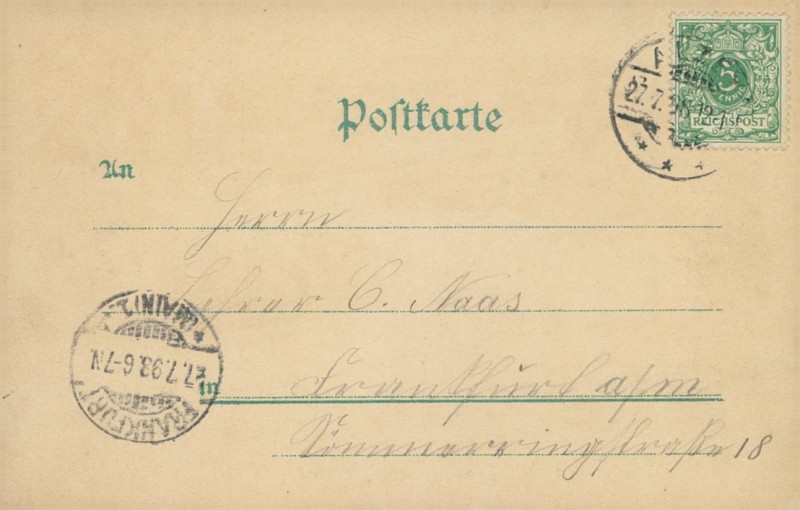 5
REICHSPOST
27.7.98
Postkarte
An
Herrn
Lehrer C. Naas
in Frankfurt a/m
Sömmerringstraße 18
FRANKFURT
(MAIN) 1.
27.7.98. 6-7N.